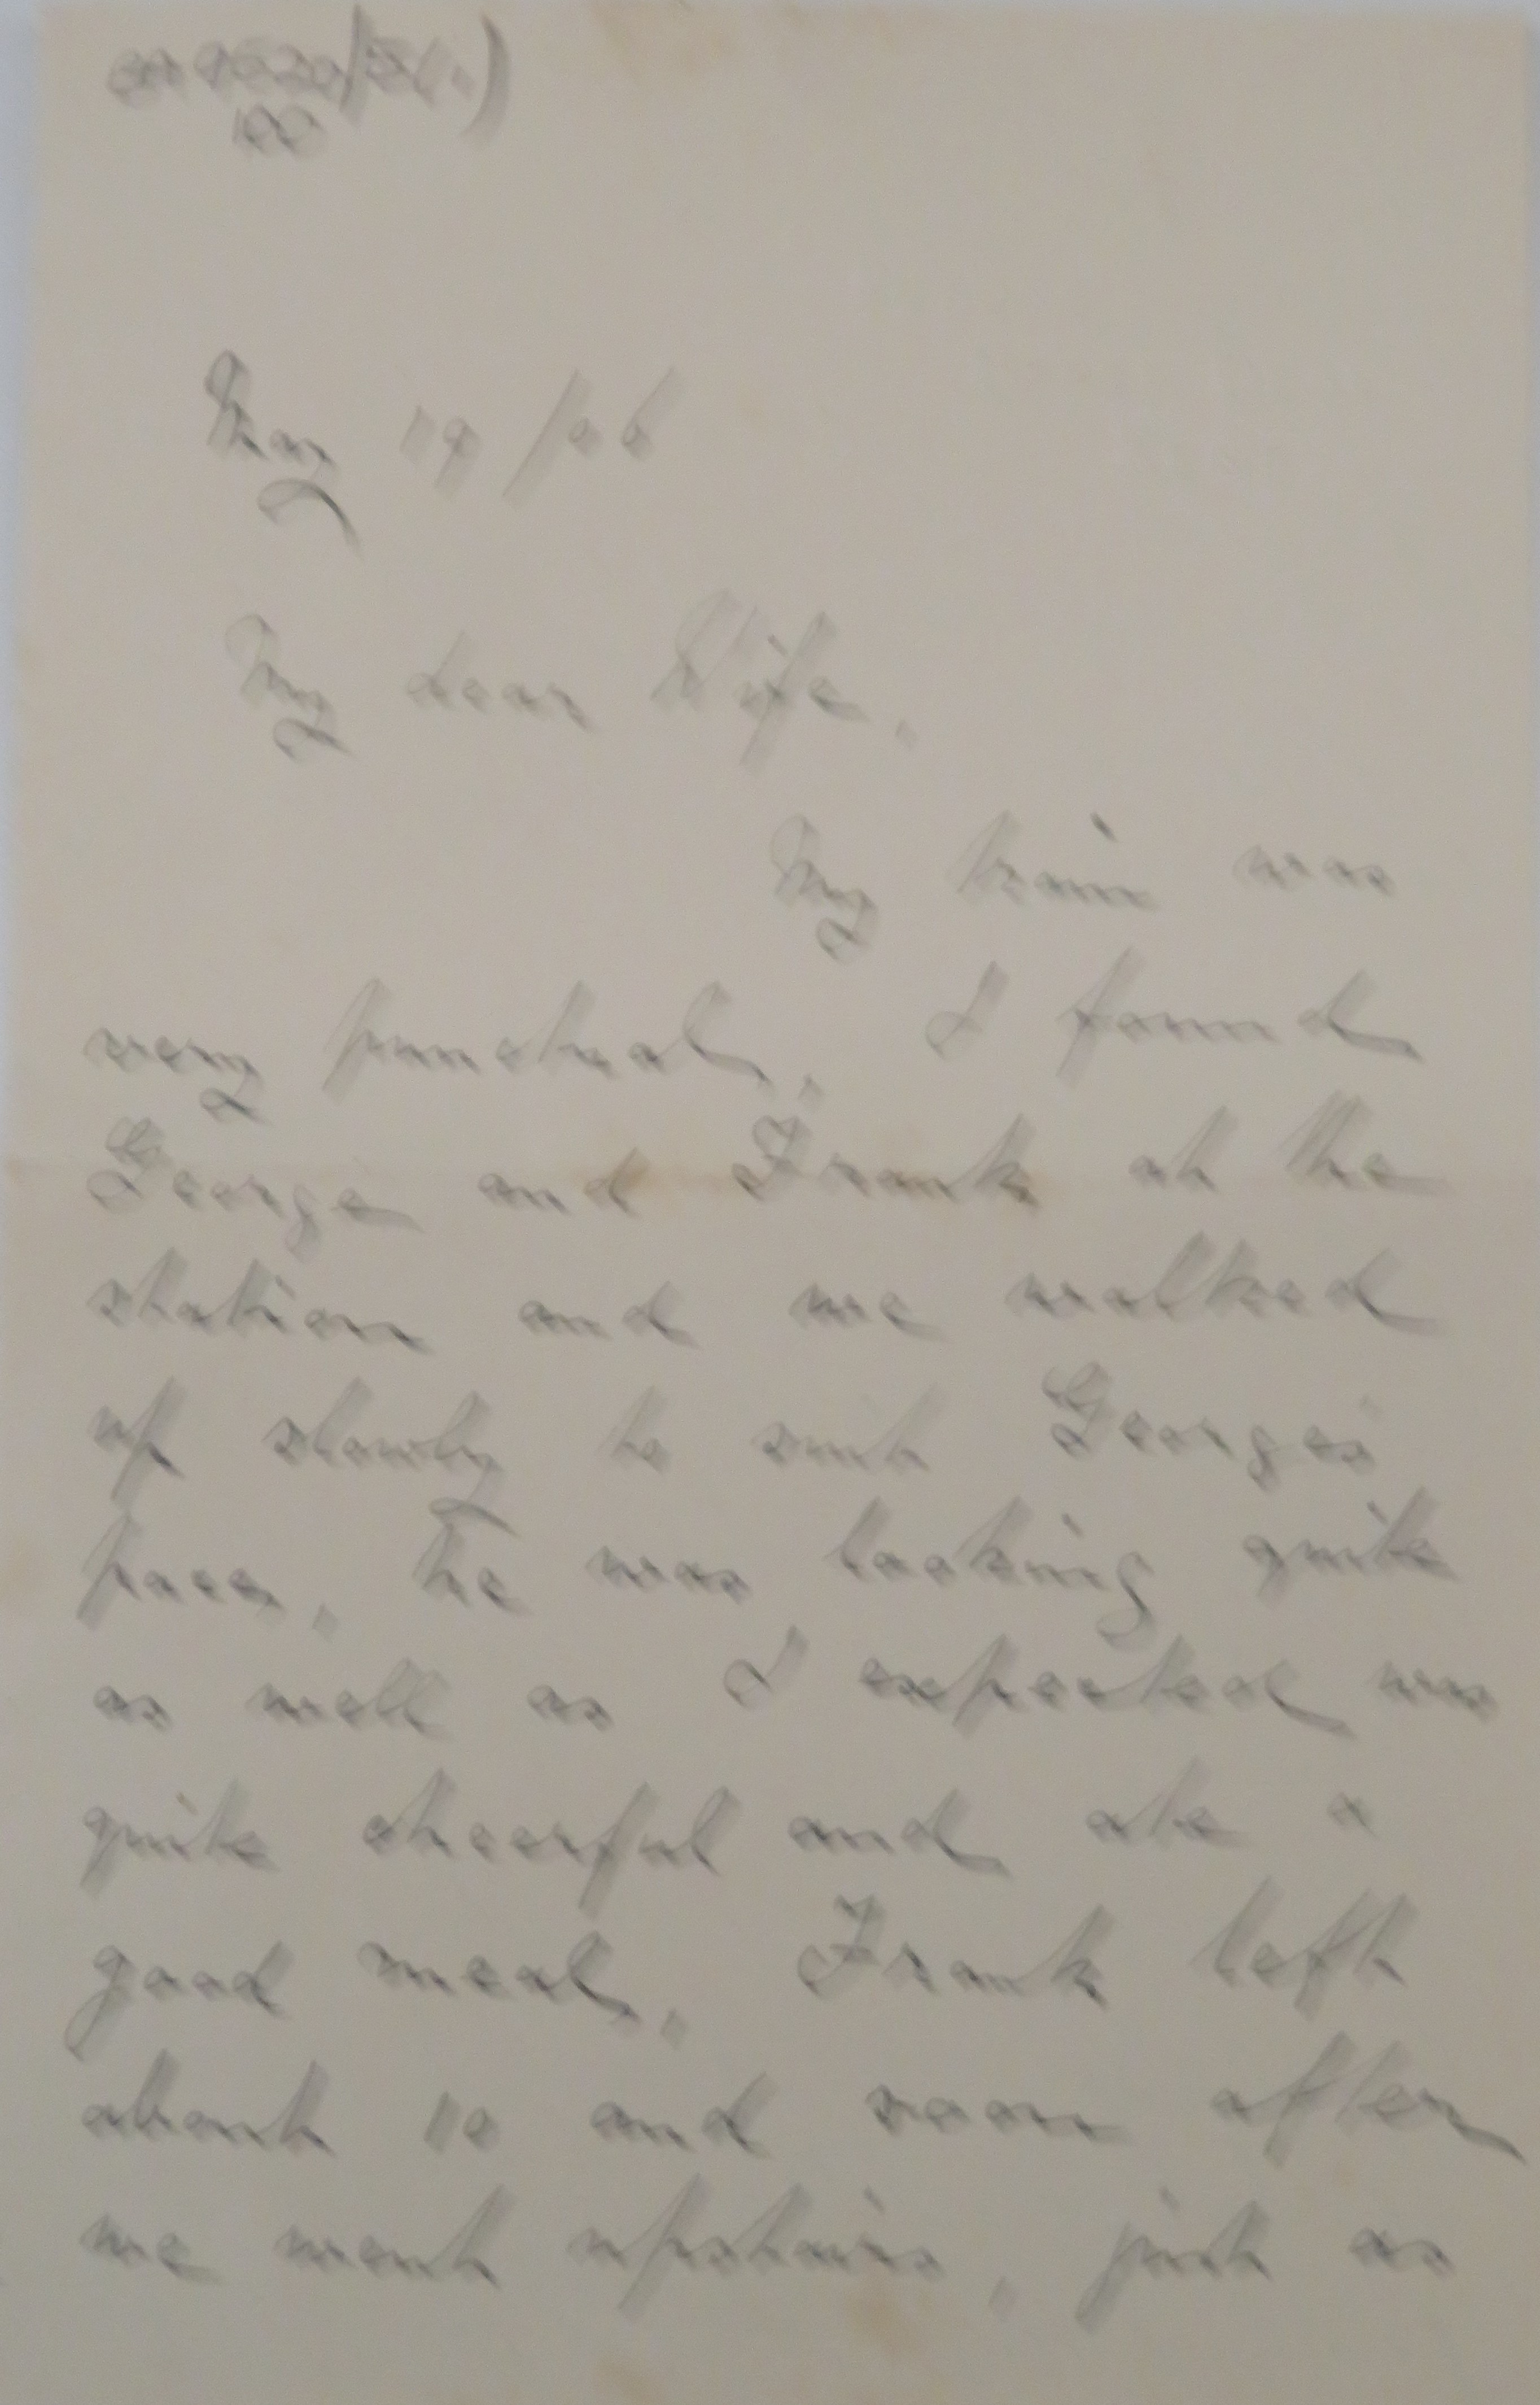 100
May 19/06
My dear Wife,
My train was
very punctual, I found
George and Frank at the
station and we walked
up slowly to suit George's
pace, he was looking quite
as well as I expected was
quite cheerful and ate a
good meal, Frank left
about 10 and soon after
we went upstairs, just as